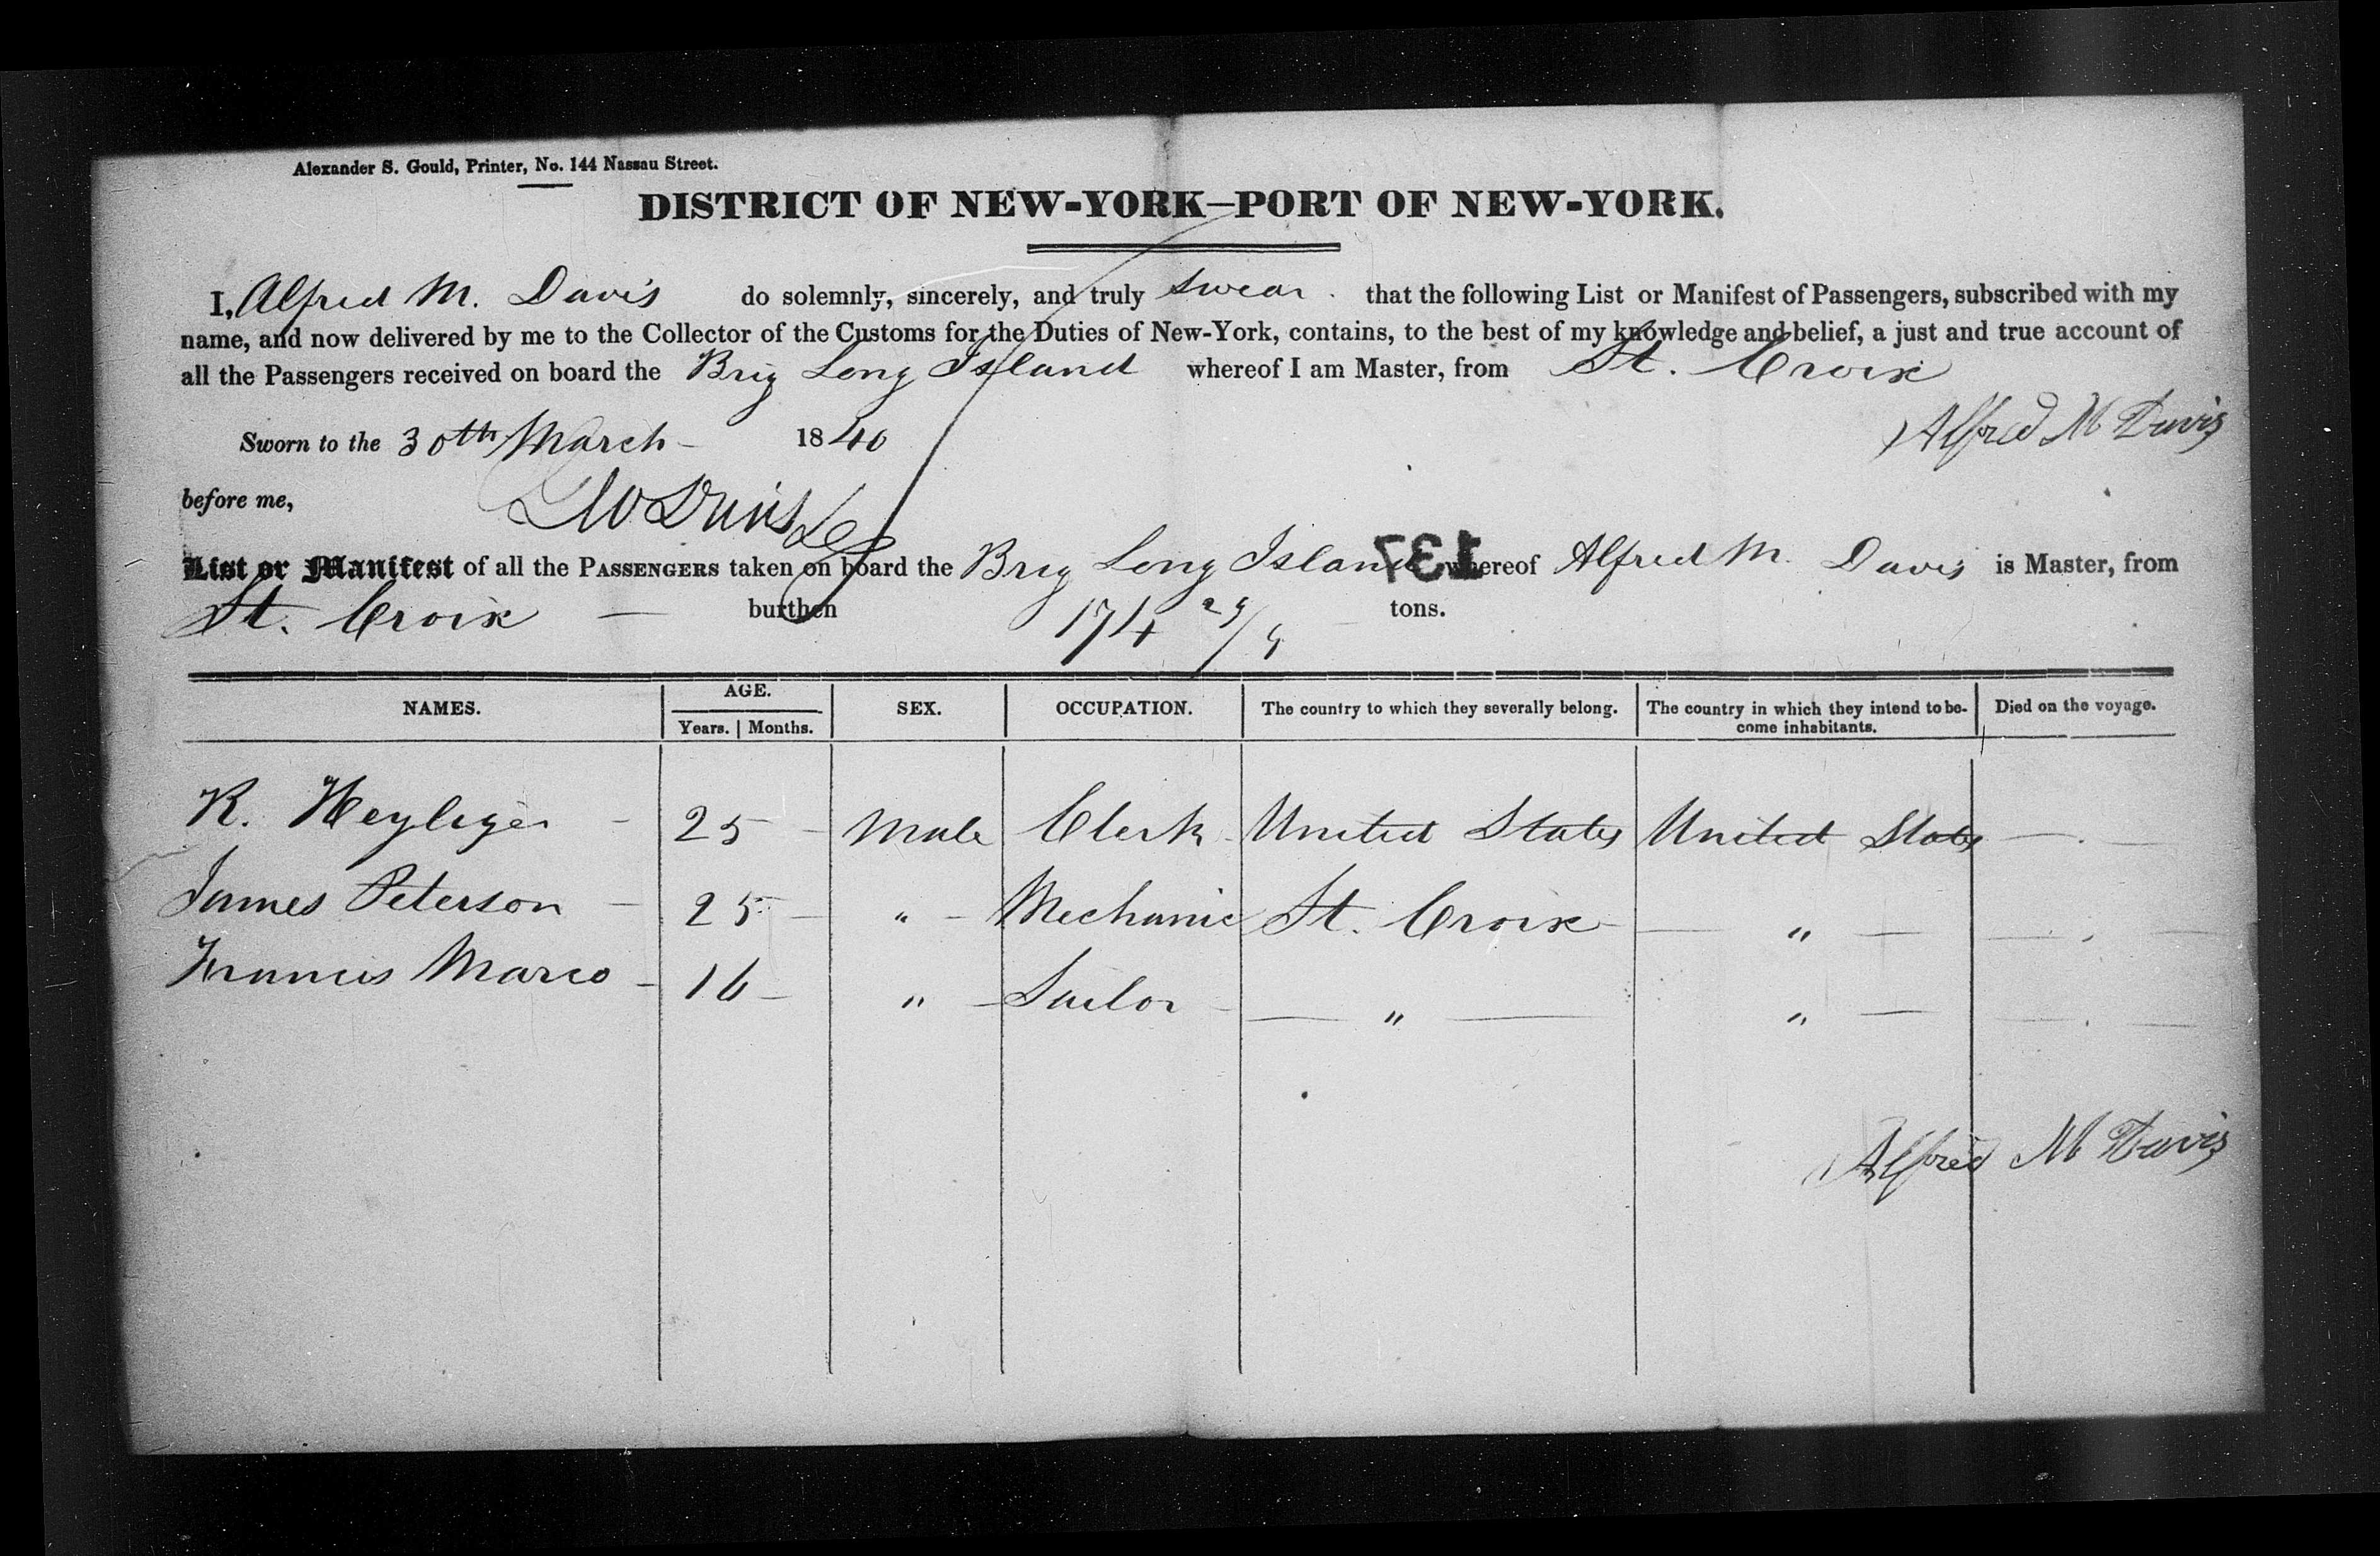 Alexander S. Gould, Printer, No. 144 Nassau Street.
DISTRICT OF NEW-YORK—PORT OF NEW-YORK.
I, Alfred M. Davis do solemnly, sincerely, and truly swear that the following List or Manifest of Passengers, subscribed with my
name, and now delivered by me to the Collector of the Customs for the Duties of New-York, contains, to the best of my knowledge and belief, a just and true account of
all the Passengers received on board the Brig Long Island whereof I am Master, from St. Croix
Alfred M Davis
Sworn to the 30th March - 1840
before me,
137
List or Manifest of all the PASSENGERS taken on board the Brig Long Island whereof Alfred M. Davis is Master, from
St. Croix — burthen 174 tons.
NAMES. AGE. SEX. OCCUPATION. The country to which they severally belong. The country in which they intend to be- Died on the voyage.
Years. | Months. come inhabitants.
R. Heyliger - 25 - Male Clerk - United States United States — . —
James Peterson - 25 - " - Mechanic St. Croix - — " — — . —
Francis Marco - 16 - " - Sailor - — " — " — — . —
Alfred M Davis